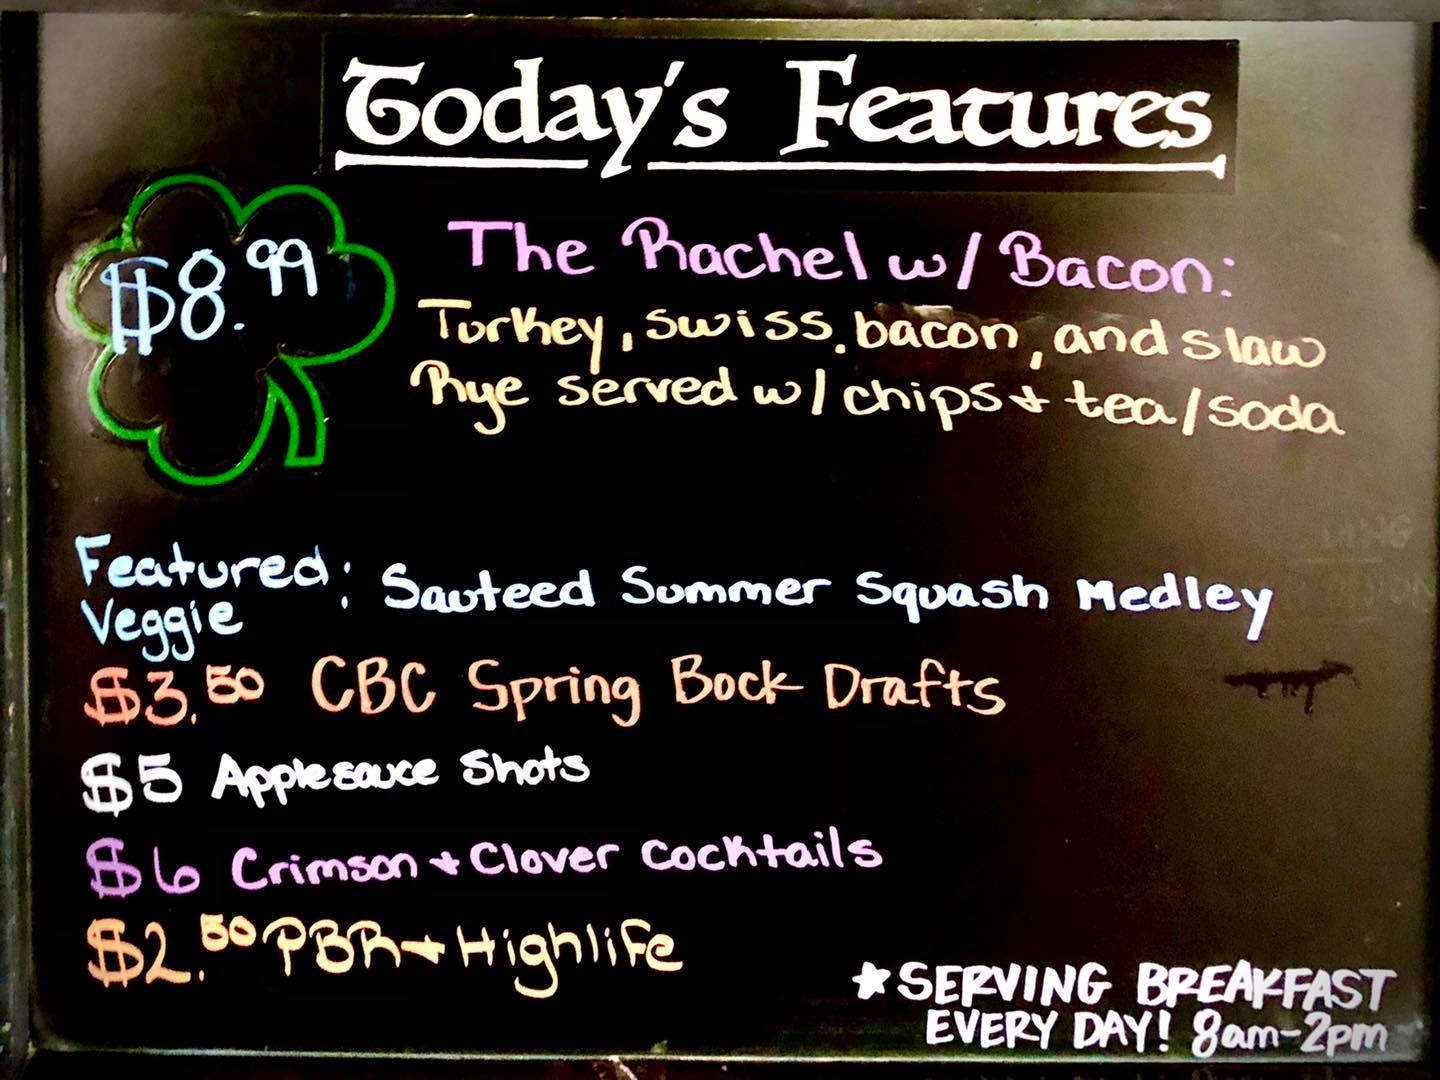 Today's Features
$8.99
The Rachel w/ Bacon:
Turkey, swiss, bacon, and slaw
Rye served w/ chips + tea/soda
Featured Veggie: Sauteed Summer Squash Medley
$3.50 CBC Spring Bock Drafts
$5 Applesauce Shots
$6 Crimson + Clover Cocktails
$2.50 PBR + Highlife
*SERVING BREAKFAST
EVERY DAY! 8am-2pm